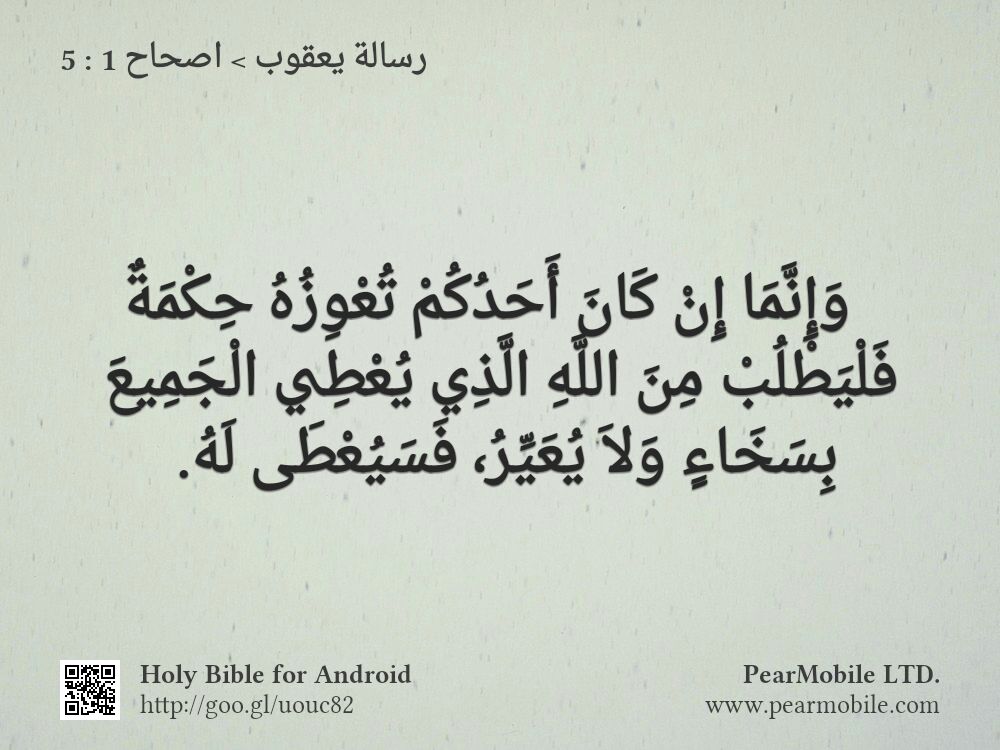 رسالة يعقوب > اصحاح 1 : 5
وَإِنَّمَا إِنْ كَانَ أَحَدُكُمْ تُعْوِزُهُ حِكْمَةٌ
فَلْيَطْلُبْ مِنَ اللَّهِ الَّذِي يُعْطِي الْجَمِيعَ
بِسَخَاءٍ وَلاَ يُعَيِّرُ، فَسَيُعْطَى لَهُ.
Holy Bible for Android
http://goo.gl/uouc82
PearMobile LTD.
www.pearmobile.com